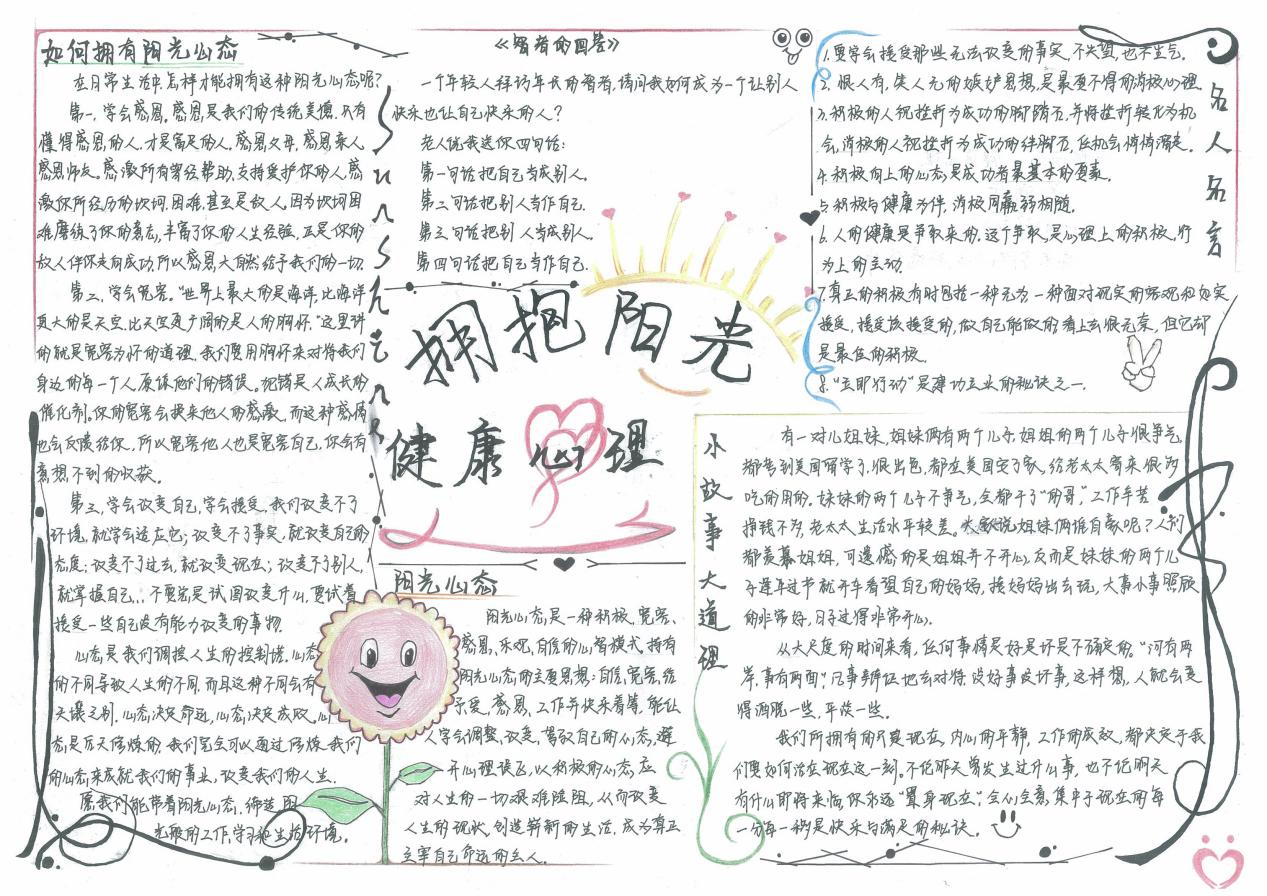 如何拥有阳光心态
在日常生活中,怎样才能拥有这种阳光心态呢?
第一、学会感恩。感恩是我们的传统美德,只有
懂得感恩的人,才是富足的人。感恩父母,感恩亲人,
感恩师友。感激所有曾经帮助、支持爱护你的人,感
激你所经历的坎坷、困难,甚至是敌人,因为坎坷困
难磨练了你的意志,丰富了你的人生经验,正是你的
敌人伴你走向成功,所以感恩大自然给予我们的一切.
第二、学会宽容。“世界上最大的是海洋,比海洋
更大的是天空,比天空更广阔的是人的胸怀.”这里讲
的就是宽容为怀的道理,我们要用胸怀来对待我们
身边的每一个人,原谅他们的错误。犯错是人成长的
催化剂。你的宽容会换来他人的感激,而这种感情
也会反馈给你,所以宽容他人也是宽容自己,你会有
意想不到的收获。
第三、学会改变自己,学会接受。我们改变不了
环境,就学会适应它;改变不了事实,就改变自己的
态度;改变不了过去,就改变现在;改变不了别人,
就掌握自己...不要总是试图改变什么,要试着
接受一些自己没有能力改变的事物.
心态是我们调控人生的控制塔。心态
的不同导致人生的不同,而且这种不同会有
天壤之别.心态决定命运,心态决定成败,心
态是后天修炼的,我们完全可以通过修炼我们
的心态来成就我们的事业,改变我们的人生.
愿我们能带着阳光心态,缔造阳
光般的工作,学习和生活环境。
Sunshine
《智者的四答》
一个年轻人拜访年长的智者,请问我如何成为一个让别人
快乐也让自己快乐的人?
老人说我送你四句话:
第一句话把自己当成别人。
第二句话把别人当作自己.
第三句话把别人当成别人.
第四句话把自己当作自己.
拥抱阳光
健康心理
阳光心态
阳光心态是一种积极、宽容、
感恩、乐观、自信的心智模式.拥有
阳光心态的主要思想:自信、宽容、给
予爱、感恩、工作并快乐着等,能让
人学会调整、改变、驾驭自己的心态,避
开心理误区,以积极的心态,应
对人生的一切艰难险阻,从而改变
人生的现状,创造崭新的生活,成为真正
主宰自己命运的主人.
名人名言
1.要学会接受那些无法改变的事实,不失望,也不生气.
2.恨人有,笑人无的嫉妒思想,是最要不得的消极心理.
3.积极的人视挫折为成功的脚踏石,并将挫折转化为机
会,消极的人视挫折为成功的绊脚石,任机会悄悄溜走.
4.积极向上的心态,是成功者最基本的要素。
5.积极与健康为伴,消极同羸弱相随.
6.人的健康是争取来的.这个争取,是心理上的积极,行
为上的主动.
7.真正的积极有时包括一种无为.一种面对现实的客观和如实
接受,接受该接受的,做自己能做的.看上去很无奈,但它却
是最佳的积极.
8.“立即行动”是建功立业的秘诀之一.
小故事大道理
有一对儿姐妹,姐妹俩有两个儿子,姐姐的两个儿子很争气,
都考到美国留学了,很出色,都在美国定了家,给老太太寄来很多
吃的用的.妹妹的两个儿子不争气,全都干了“的哥”.工作辛苦
挣钱不多,老太太生活水平较差。大家说姐妹俩谁自豪呢?人们
都羡慕姐姐,可遗憾的是姐姐并不开心,反而是妹妹的两个儿
子逢年过节就开车看望自己的妈妈,接妈妈出去玩,大事小事照顾
的非常好,日子过得非常开心.
从大尺度的时间来看,任何事情是好是坏是不确定的.“河有两
岸,事有两面”.凡事辨证地去对待.没好事没坏事,这样想,人就会变
得洒脱一些,平淡一些.
我们所拥有的只是现在,内心的平静,工作的成效,都决定于我
们要如何活在现在这一刻。不论昨天曾发生过什么事,也不论明天
有什么即将来临,你永远“置身现在”.全心全意,集中于现在的每
一分每一秒是快乐与满足的秘诀.